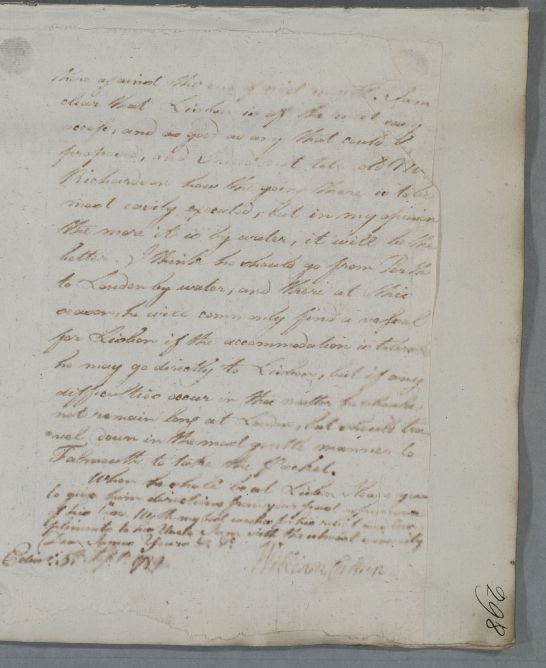 there against the end of next month. I am
clear that Lisbon is of the most easy
access, and as good as any that could be
proposed, and I need not tell old Mr
Richardson how the going there is to be
most easily executed, but in my opinion
the more it is by water, it will be the
better. I think he should go from Perth
to London by water, and there at this
season he will commonly find a vessel
for Lisbon if the accommodation is
he may go directly to Lisbon, but if any
difficulties occur in this matter he should
not remain long at London, but should
down in the most gentle manner to
Falmouth to take the Packet.
When he shall be at Lisbon I leave you
to give him directions from your great experience
of his case. With my best wishes to him
with the utmost sincerity
Dear James Yours &c &c
William Cullen
298